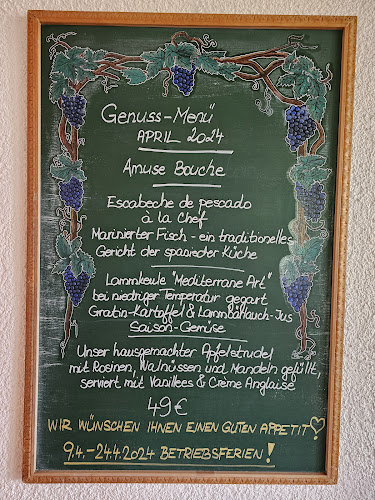 Genuss-Menü
APRIL 2024
Amuse Bouche
Escabeche de pescado
à la Chef
Marinierter Fisch - ein traditionelles
Gericht der spanischer Küche
Lammkeule "Mediterrane Art"
bei niedriger Temperatur gegart
Gratin-Kartoffel & Lammbauch-Jus
Saison-Gemüse
Unser hausgemachter Apfelstrudel
mit Rosinen, Walnüssen und Mandeln gefüllt,
serviert mit Vanilleeis & Crème Anglaise
49€
WIR WÜNSCHEN IHNEN EINEN GUTEN APPETIT
9.4.-24.4.2024 BETRIEBSFERIEN!